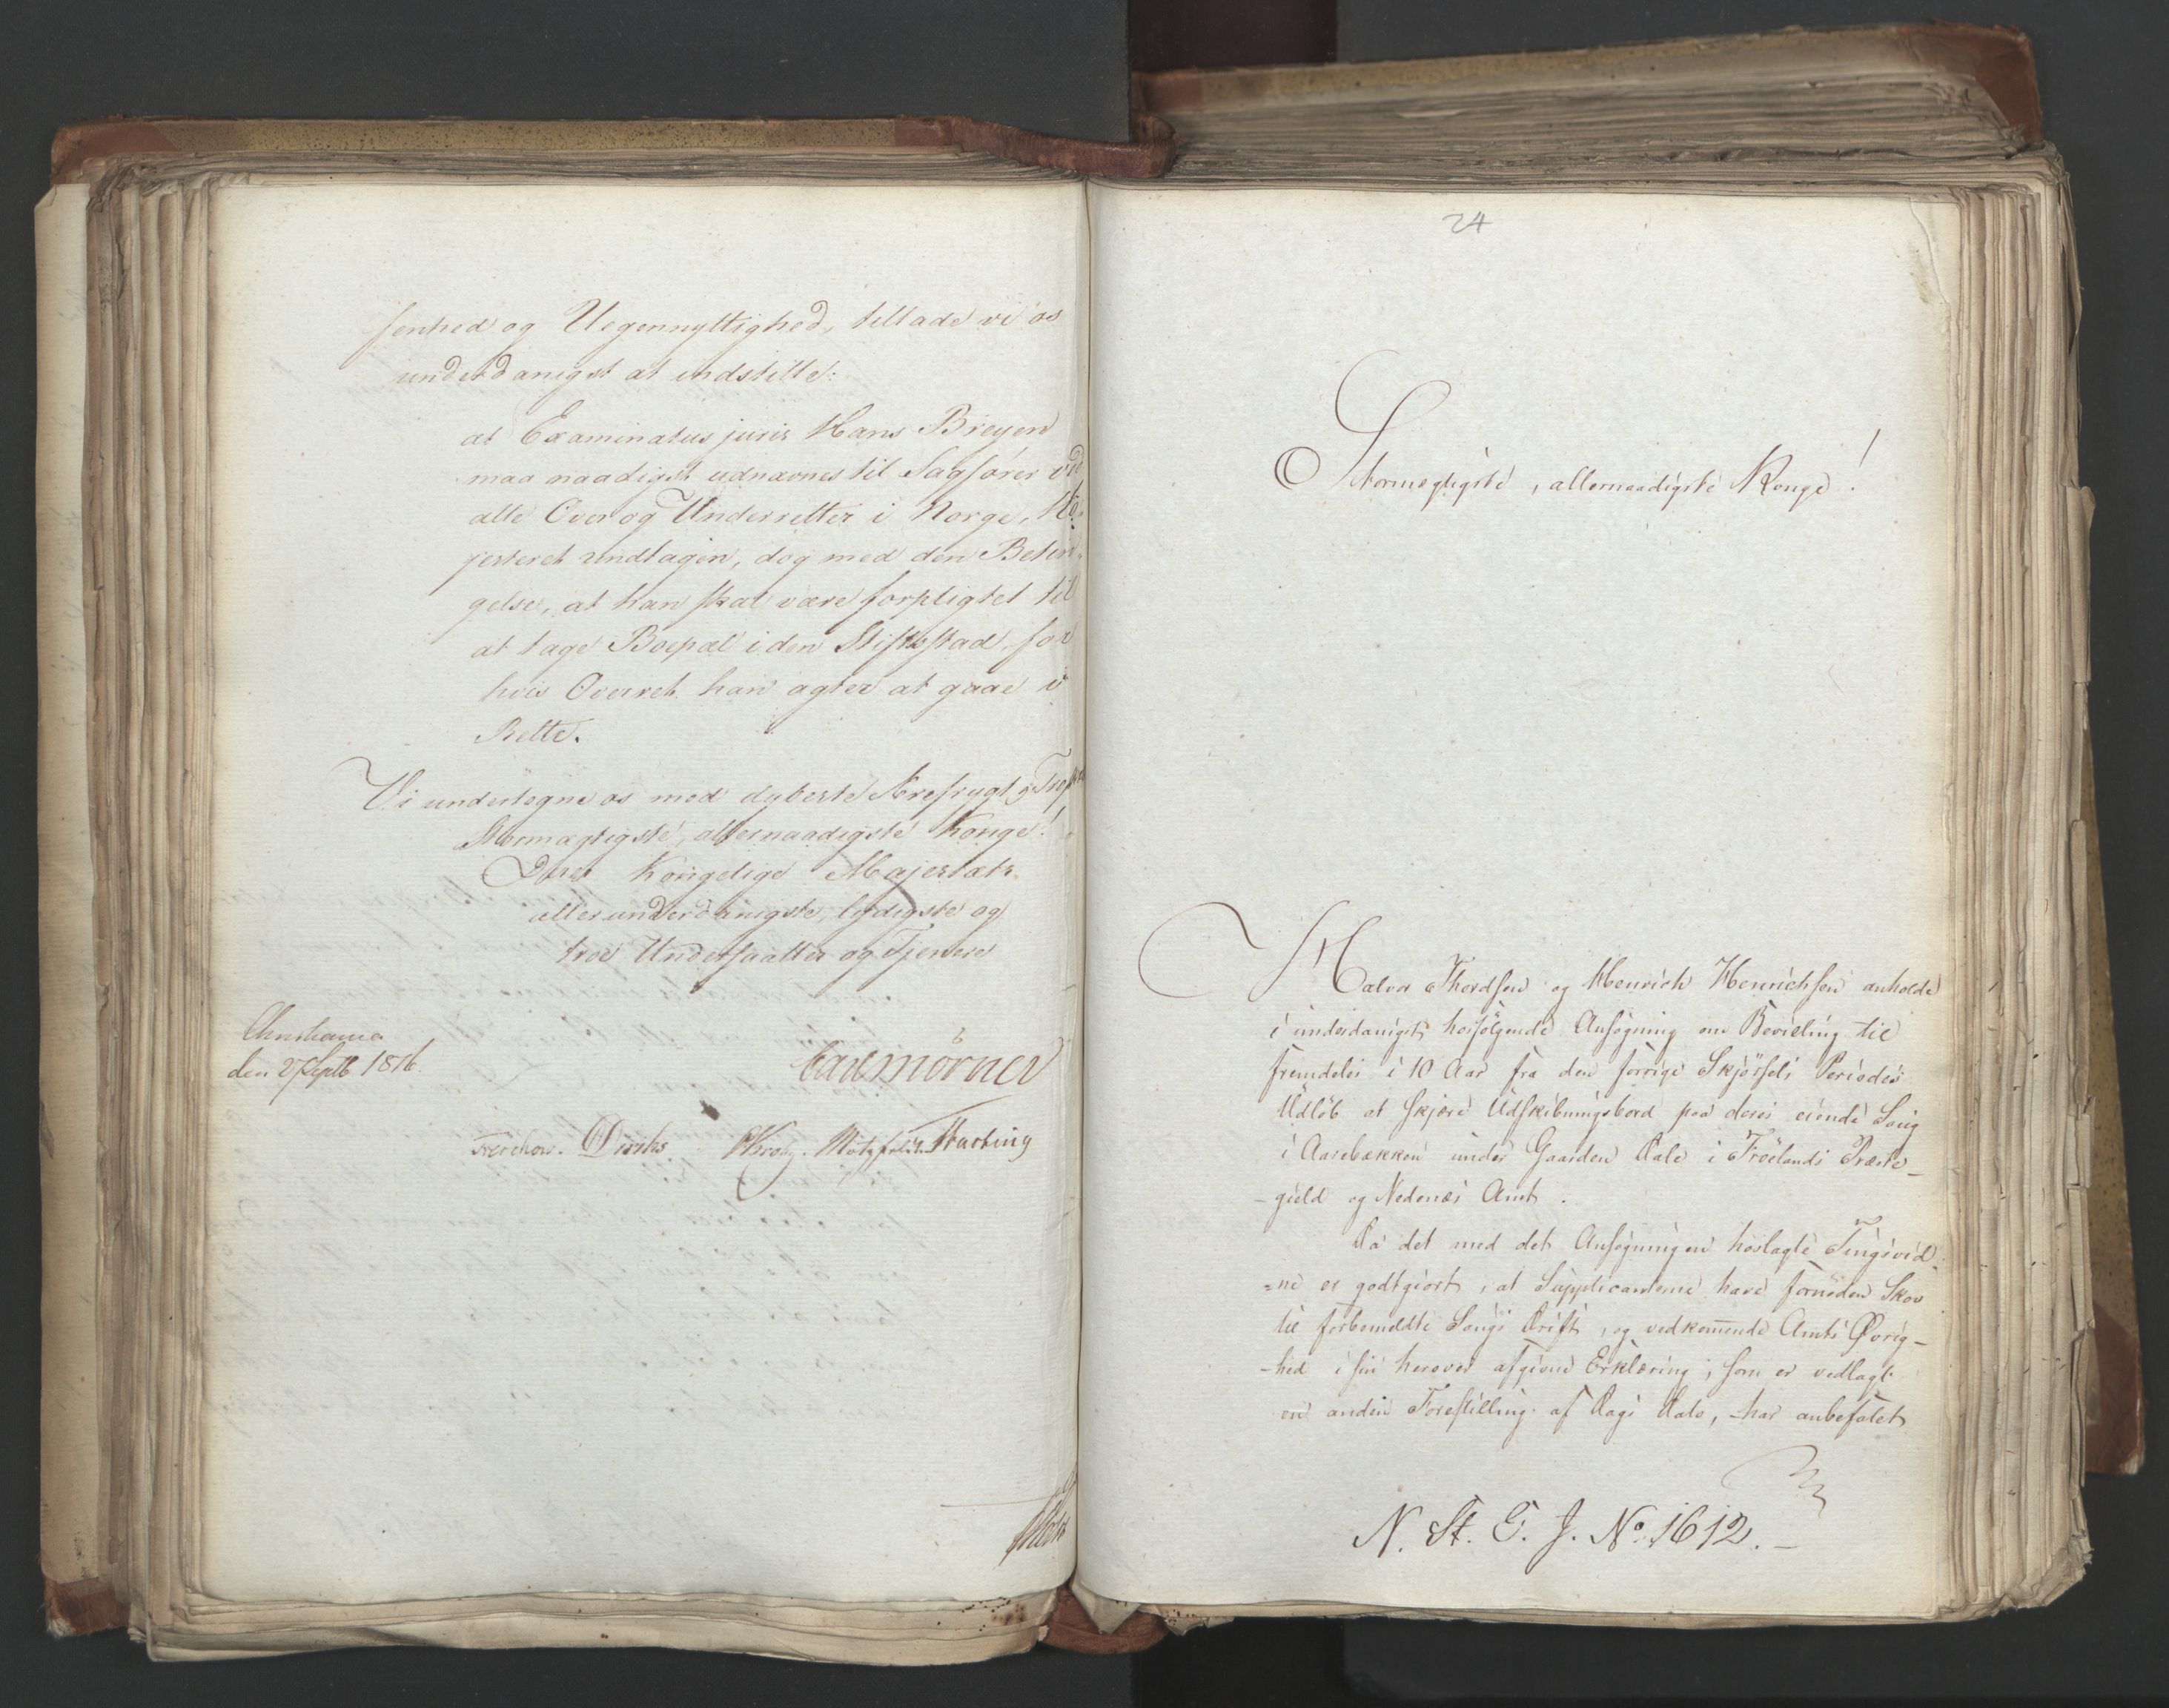 senhed og Uegennyttighed, tillade vi os
underdanigst at indstille:
at Examinatus juris Hans Breyen
maa naadigst udnævnes til Sagfører ved
alle Over og Underretter i Norge, Hö-
jesteret undtagen, dog med den Betin-
gelse, at han skal være forpligtet til
at tage Boepæl i den Stiftsstad, for
hvis Overret han agter at gaae i
Rette.
Vi undertegne os med dybeste Ærefrygt
Stormægtigste, allernaadigste Konge!
Deres Kongelige Majestæts
allerunderdanigste, lydigste og
troe Undersaatter og Tjenere
Christiania
den 2 Septb 1816.
Carl Mörner
Treschow. Diriks Krohg. Motzfeldt
24
Stormægtigste, allernaadigste Konge!
Halvor Thordsen og Henrich Henrichsen anholde
i underdanigst hosfølgende Ansøgning om Bevilling til
fremdeles i 10 Aar fra den forrige Skjørsels Periodes
Udløb at skjære Udskibningsbord paa deres eiende Saug
i Aasebækken under Gaarden Dale i Froelands Præste-
-gield og Nedenæs Amt.
Da det med det Ansøgningen hoslagte Tingsvid-
=ne er godtgiort, at Supplicanterne have fornøden Skov
til forbemeldte Saugs Drift, og vedkommende Amts Øvrig-
-hed i sin herover afgivne Erklæring, som er vedlagt
en anden Forestilling af Dags Dato, har anbefalet
N. St. C. J. No. 1612.